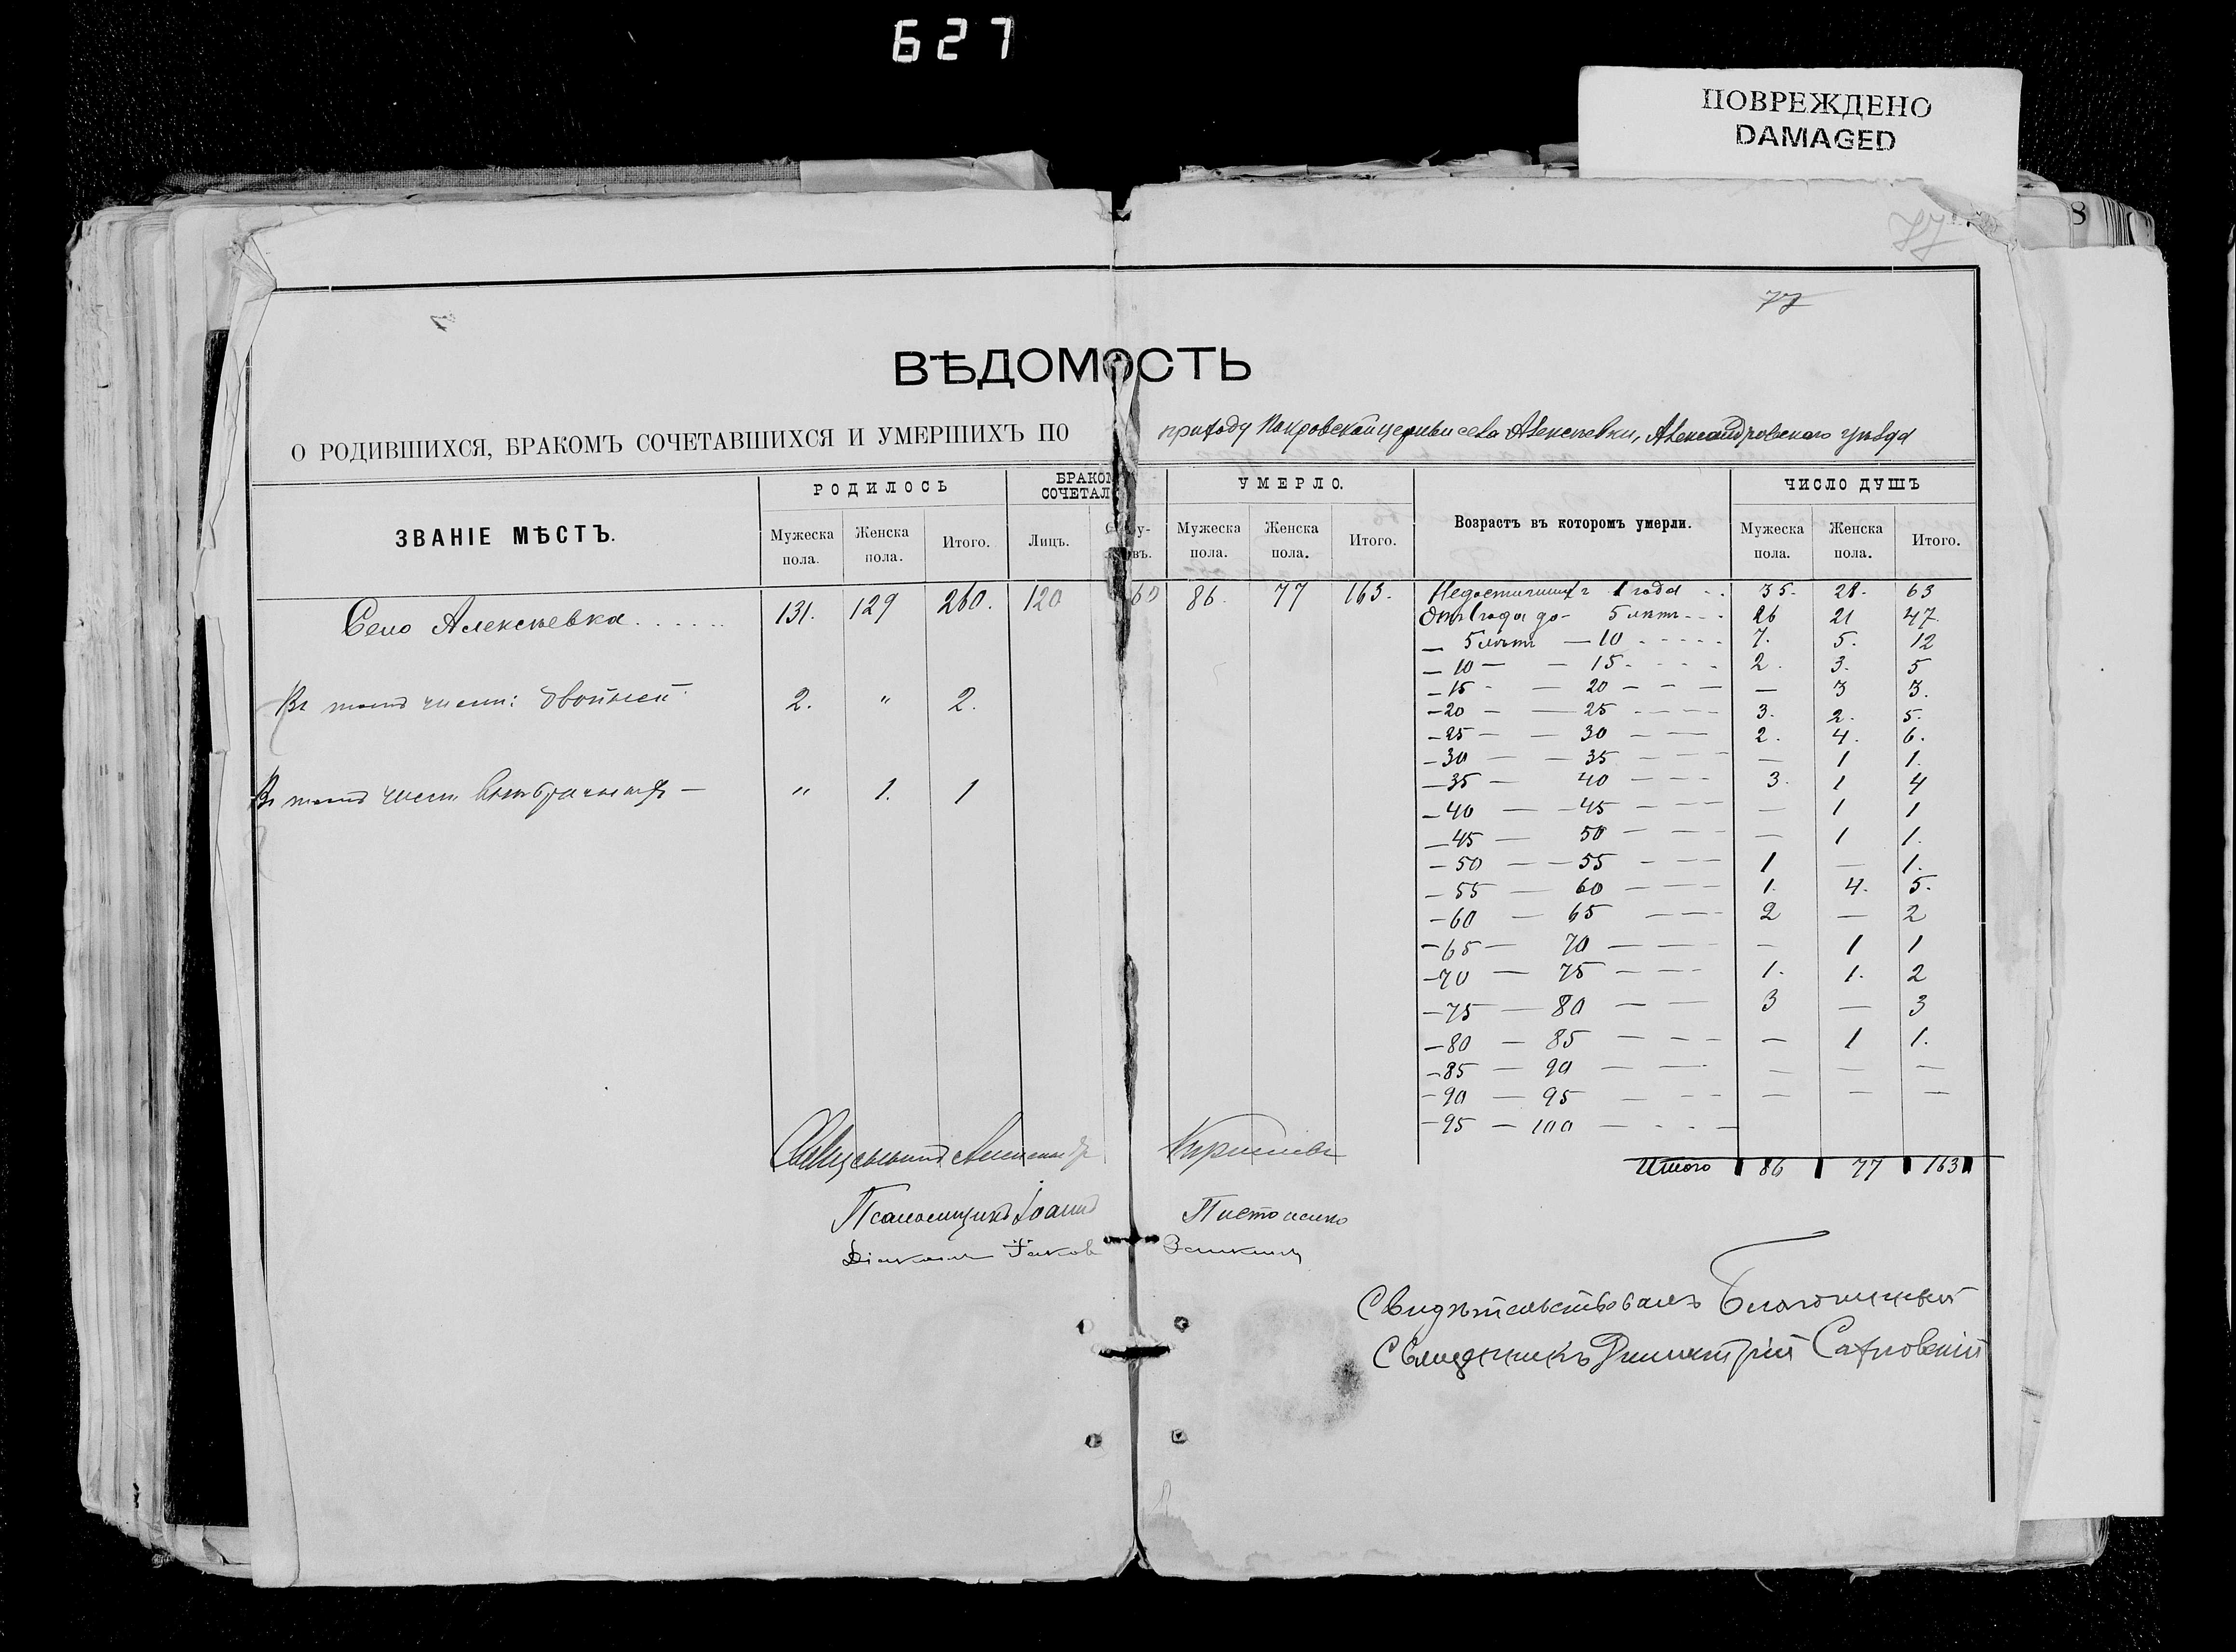 627
ПОВРЕЖДЕНО
DAMAGED
8
77
77
ВѢДОМОСТЬ
О РОДИВШИХСЯ, БРАКОМЪ СОЧЕТАВШИХСЯ И УМЕРШИХЪ ПО приходу Покровской церкви села Алексѣевки, Александровскаго уѣзда
ЗВАНІЕ МѢСТЪ. РОДИЛОСЬ БРАКОМ СОЧЕТАЛ УМЕРЛО. Возрастъ въ которомъ умерли. ЧИСЛО ДУШЪ
Мужеска пола. Женска пола. Итого. Лицъ. Мужеска пола. Женска пола. Итого. Мужеска пола. Женска пола. Итого.
Село Алексѣевка . . . . . . 131. 129 260. 120 60 86. 77 163. Недостигшихъ 1 года . . 35. 28. 63
Отъ 1 года до - 5 лѣтъ - - - 26 21 47.
— 5 лѣтъ — 10 - - - - - 7. 5. 12
— 10 — — 15 - - - - 2. 3. 5
— 15 - — 20 — — — — 3 3.
Въ томъ числѣ: двойней 2. " 2.
— 20 — — 25 - - - - 3. 2. 5.
— 25 — — 30 — — 2. 4. 6.
— 30 — — 35 - - - — 1 1.
— 35 — 40 — — - 3. 1 4
Въ томъ числѣ внѣбрачныхъ — " 1. 1
— 40 — — 45 — — — — 1 1
— 45 — 50 — — — — 1 1.
— 50 — — 55 - — — 1 — 1.
— 55 — 60 — — — 1. 4. 5.
— 60 — 65 — — - 2 — 2
— 65 — 70 — — — — 1 1
— 70 — 75 — — - 1. 1. 2
— 75 — 80 — — 3 — 3
— 80 — 85 — — - — 1 1.
— 85 — 90 — — — — —
— 90 — 95 — - — — — —
— 95 — 100 — - - —
Итого 86 77 163
Священникъ Александръ
Псаломщикъ Іоаннъ
Діаконъ Іаковъ Заикинъ
Свидѣтельствовалъ Благочинный
Священникъ Димитрій